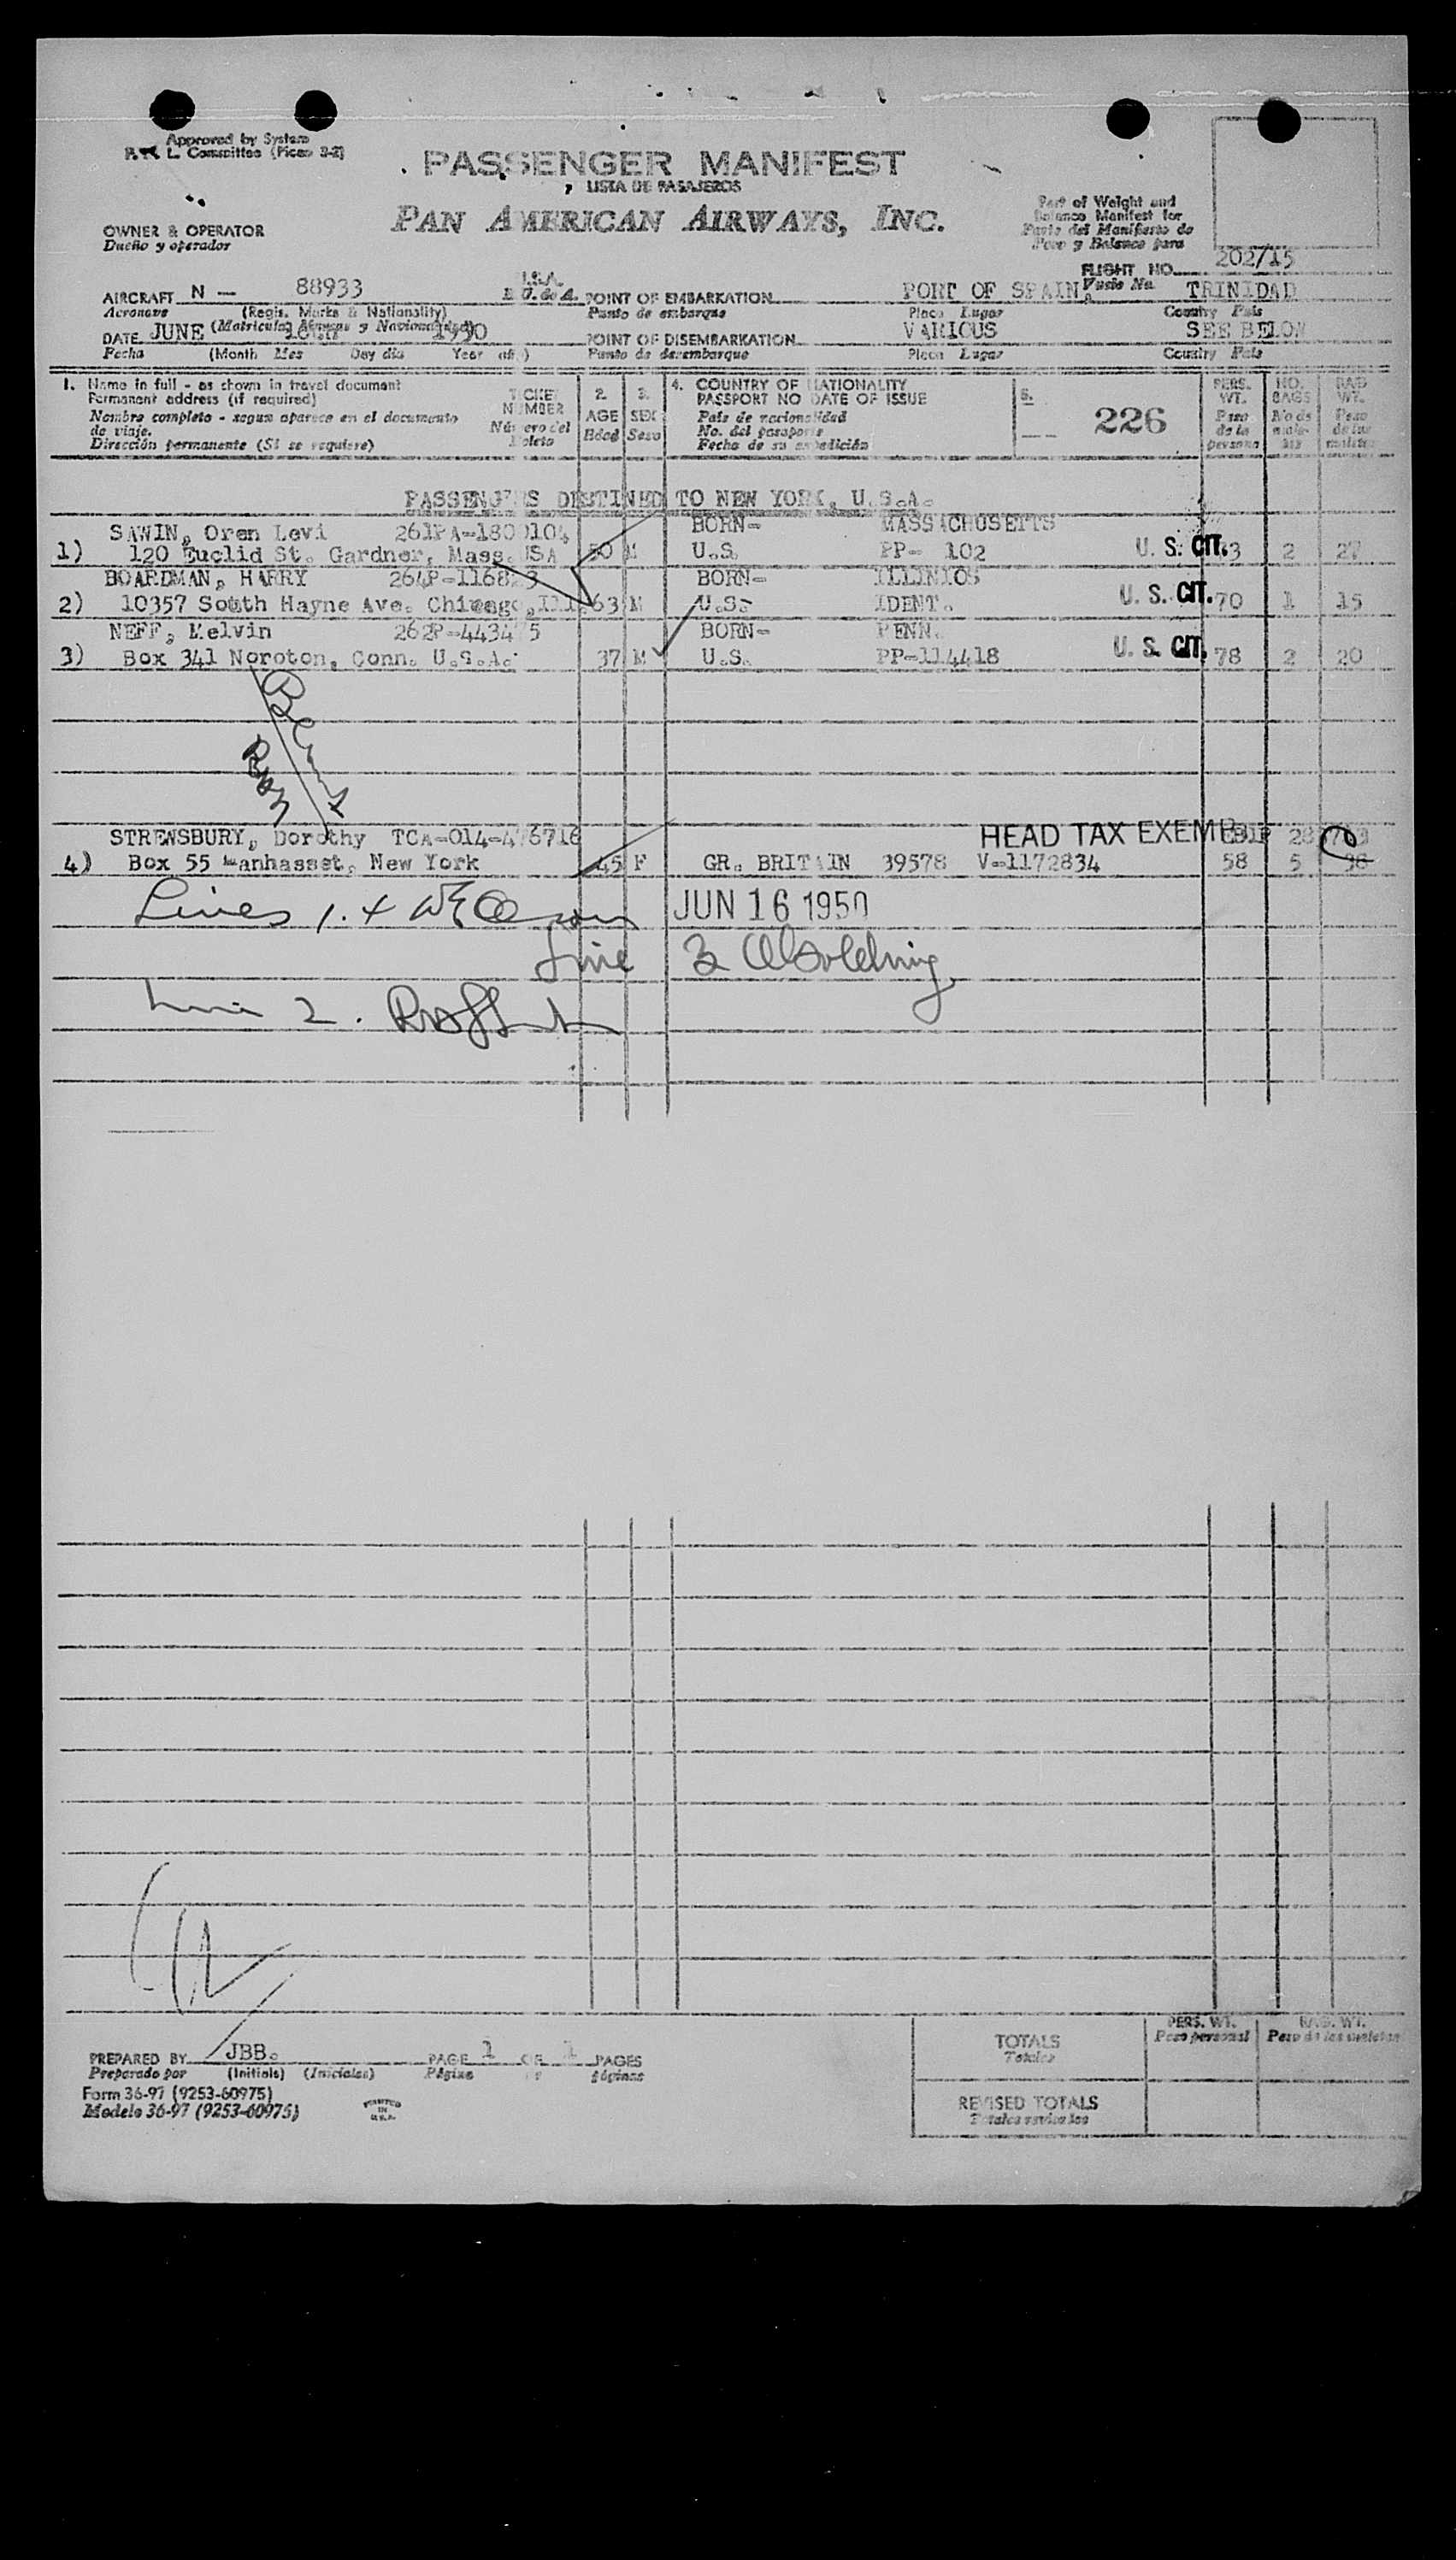 Approved by System
P. & L. Committee (Picao 3-2)
PASSENGER MANIFEST
LISTA DE PASAJEROS
PAN AMERICAN AIRWAYS, INC.
OWNER & OPERATOR
Dueño y operador
Part of Weight and
Balance Manifest for
Parte del Manifiesto de
Peso y Balance para
FLIGHT NO. 202/15
Vuelo No.
AIRCRAFT N - 88933 U.S.A. POINT OF EMBARKATION PORT OF SPAIN, TRINIDAD
Aeronave (Regis. Marks & Nationality) E. U. de A. Punto de embarque Place Lugar Country País
(Matricula, Marcas y Nacionalidad)
DATE JUNE 1950 POINT OF DISEMBARKATION VARIOUS SEE BELOW
Fecha (Month Mes Day día Year año) Punto de desembarque Place Lugar Country País
1. Name in full - as shown in travel document TICKET 2. 3. 4. COUNTRY OF NATIONALITY 5. PERS. NO. BAG
Permanent address (if required) NUMBER AGE SEX PASSPORT NO DATE OF ISSUE 226 WT. BAGS WT.
Nombre completo - segun aparece en el documento Número del Edad Sexo País de nacionalidad Peso No de Peso
de viaje. Boleto No. del pasaporte de la male- de las
Dirección permanente (Si se requiere) Fecha de su expedición persona tas maletas
PASSENGERS DESTINED TO NEW YORK, U.S.A.
SAWIN, Oren Levi 261PA-180 104 BORN- MASSACHUSETTS
1) 120 Euclid St. Gardner, Mass. USA 50 M U.S. PP- 102 U. S. CIT. 3 2 27
BOARDMAN, HARRY 264P-116823 BORN- ILLINIOS
2) 10357 South Hayne Ave. Chicago, Ill. 63 M U.S. IDENT. U. S. CIT. 70 1 15
NEFF, Melvin 262P-4434 5 BORN- PENN.
3) Box 341 Noroton, Conn. U.S.A. 37 M U.S. PP-114418 U. S. CIT. 78 2 20
STREWSBURY, Dorothy TCA-014-476716 HEAD TAX EXEMP
4) Box 55 Manhasset, New York 45 F GR. BRITAIN 39578 V-1172834 58 5 98
Lines 1. 4 JUN 16 1950
Line 3
Line 2.
PREPARED BY JBB. PAGE 1 OF 1 PAGES
Preparado por (Initials) (Iniciales) Página de páginas
Form 36-97 (9253-60975)
Modelo 36-97 (9253-60975)
PRINTED
IN
U.S.A.
PERS. WT. BAG. WT.
TOTALS Peso personal Peso de las maletas
Totales
REVISED TOTALS
Totales revisados